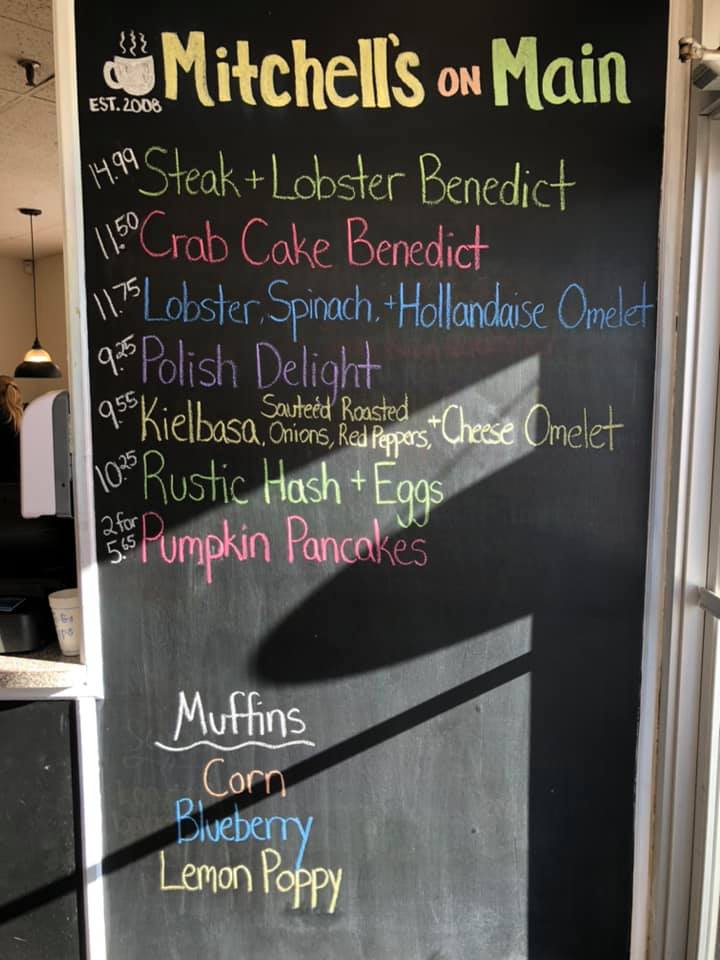 Mitchell's on Main
EST. 2008
14.99 Steak + Lobster Benedict
11.50 Crab Cake Benedict
11.75 Lobster, Spinach, + Hollandaise Omelet
9.25 Polish Delight
9.55 Kielbasa, Sauteéd Roasted Onions, Red Peppers, + Cheese Omelet
10.25 Rustic Hash + Eggs
2 for 5.65 Pumpkin Pancakes
Muffins
Corn
Blueberry
Lemon Poppy